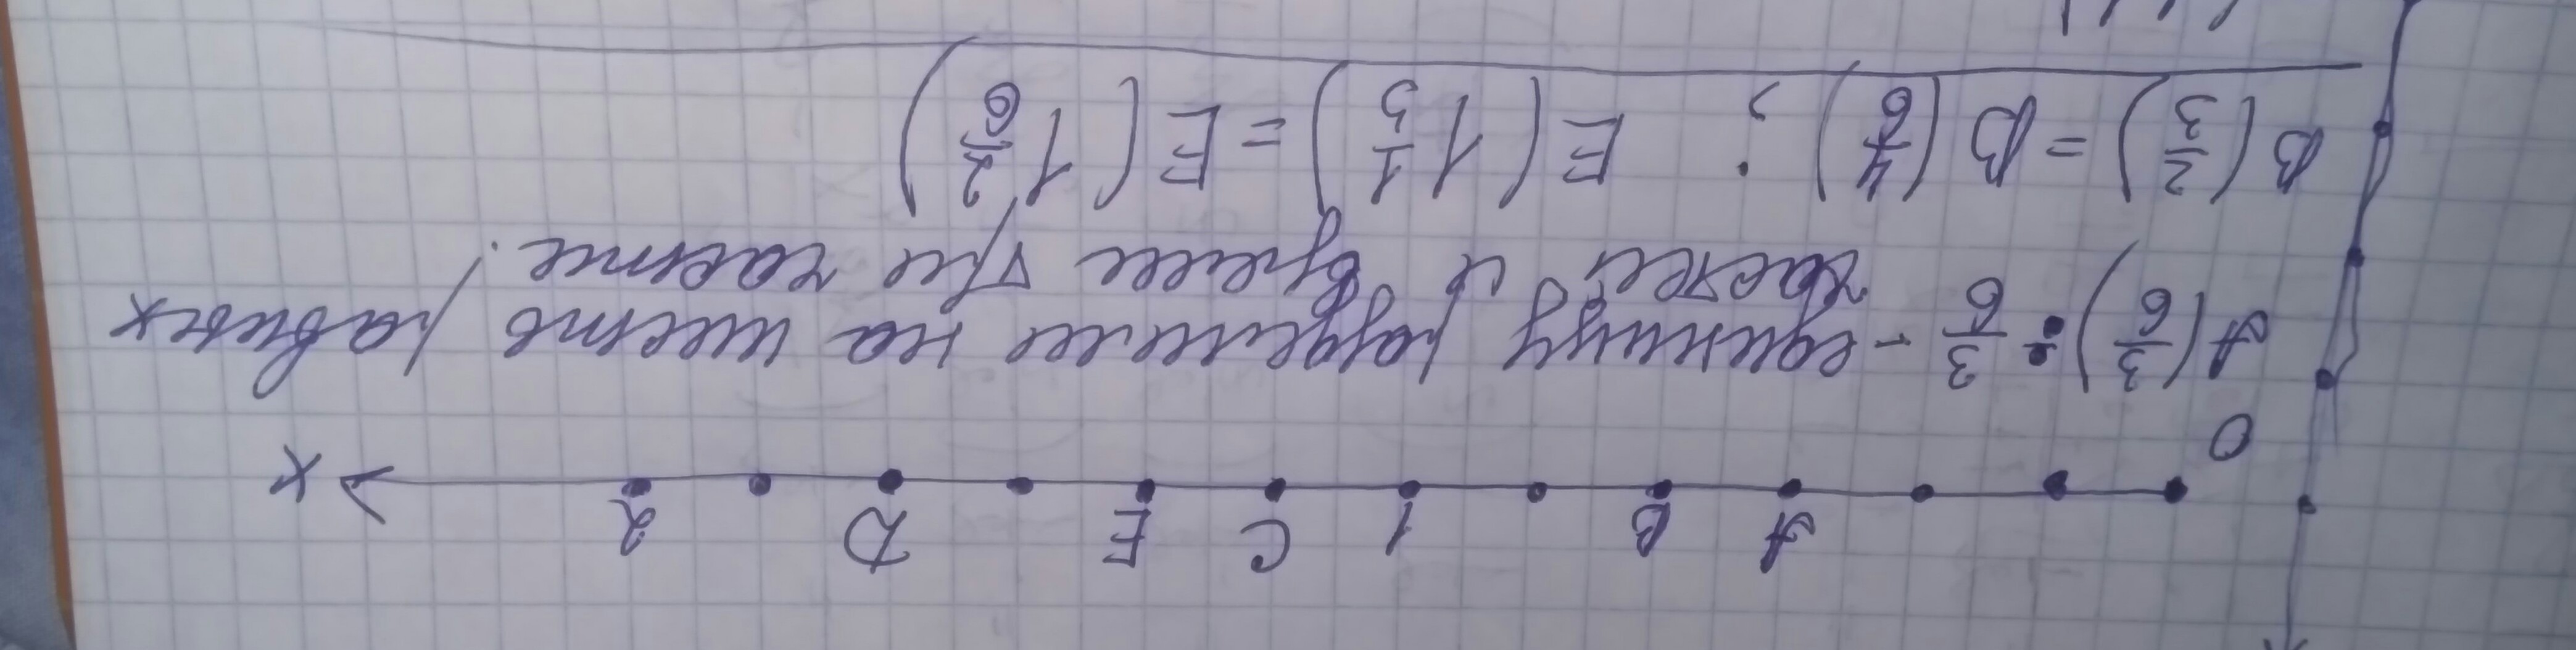 A B 1 C E D 2
0 x
A(3/6); 3/6 - единицу разделили на шесть равных
частей и взяли три части.
B(2/3) = B(4/6); E(1 1/3) = E(1 2/6)